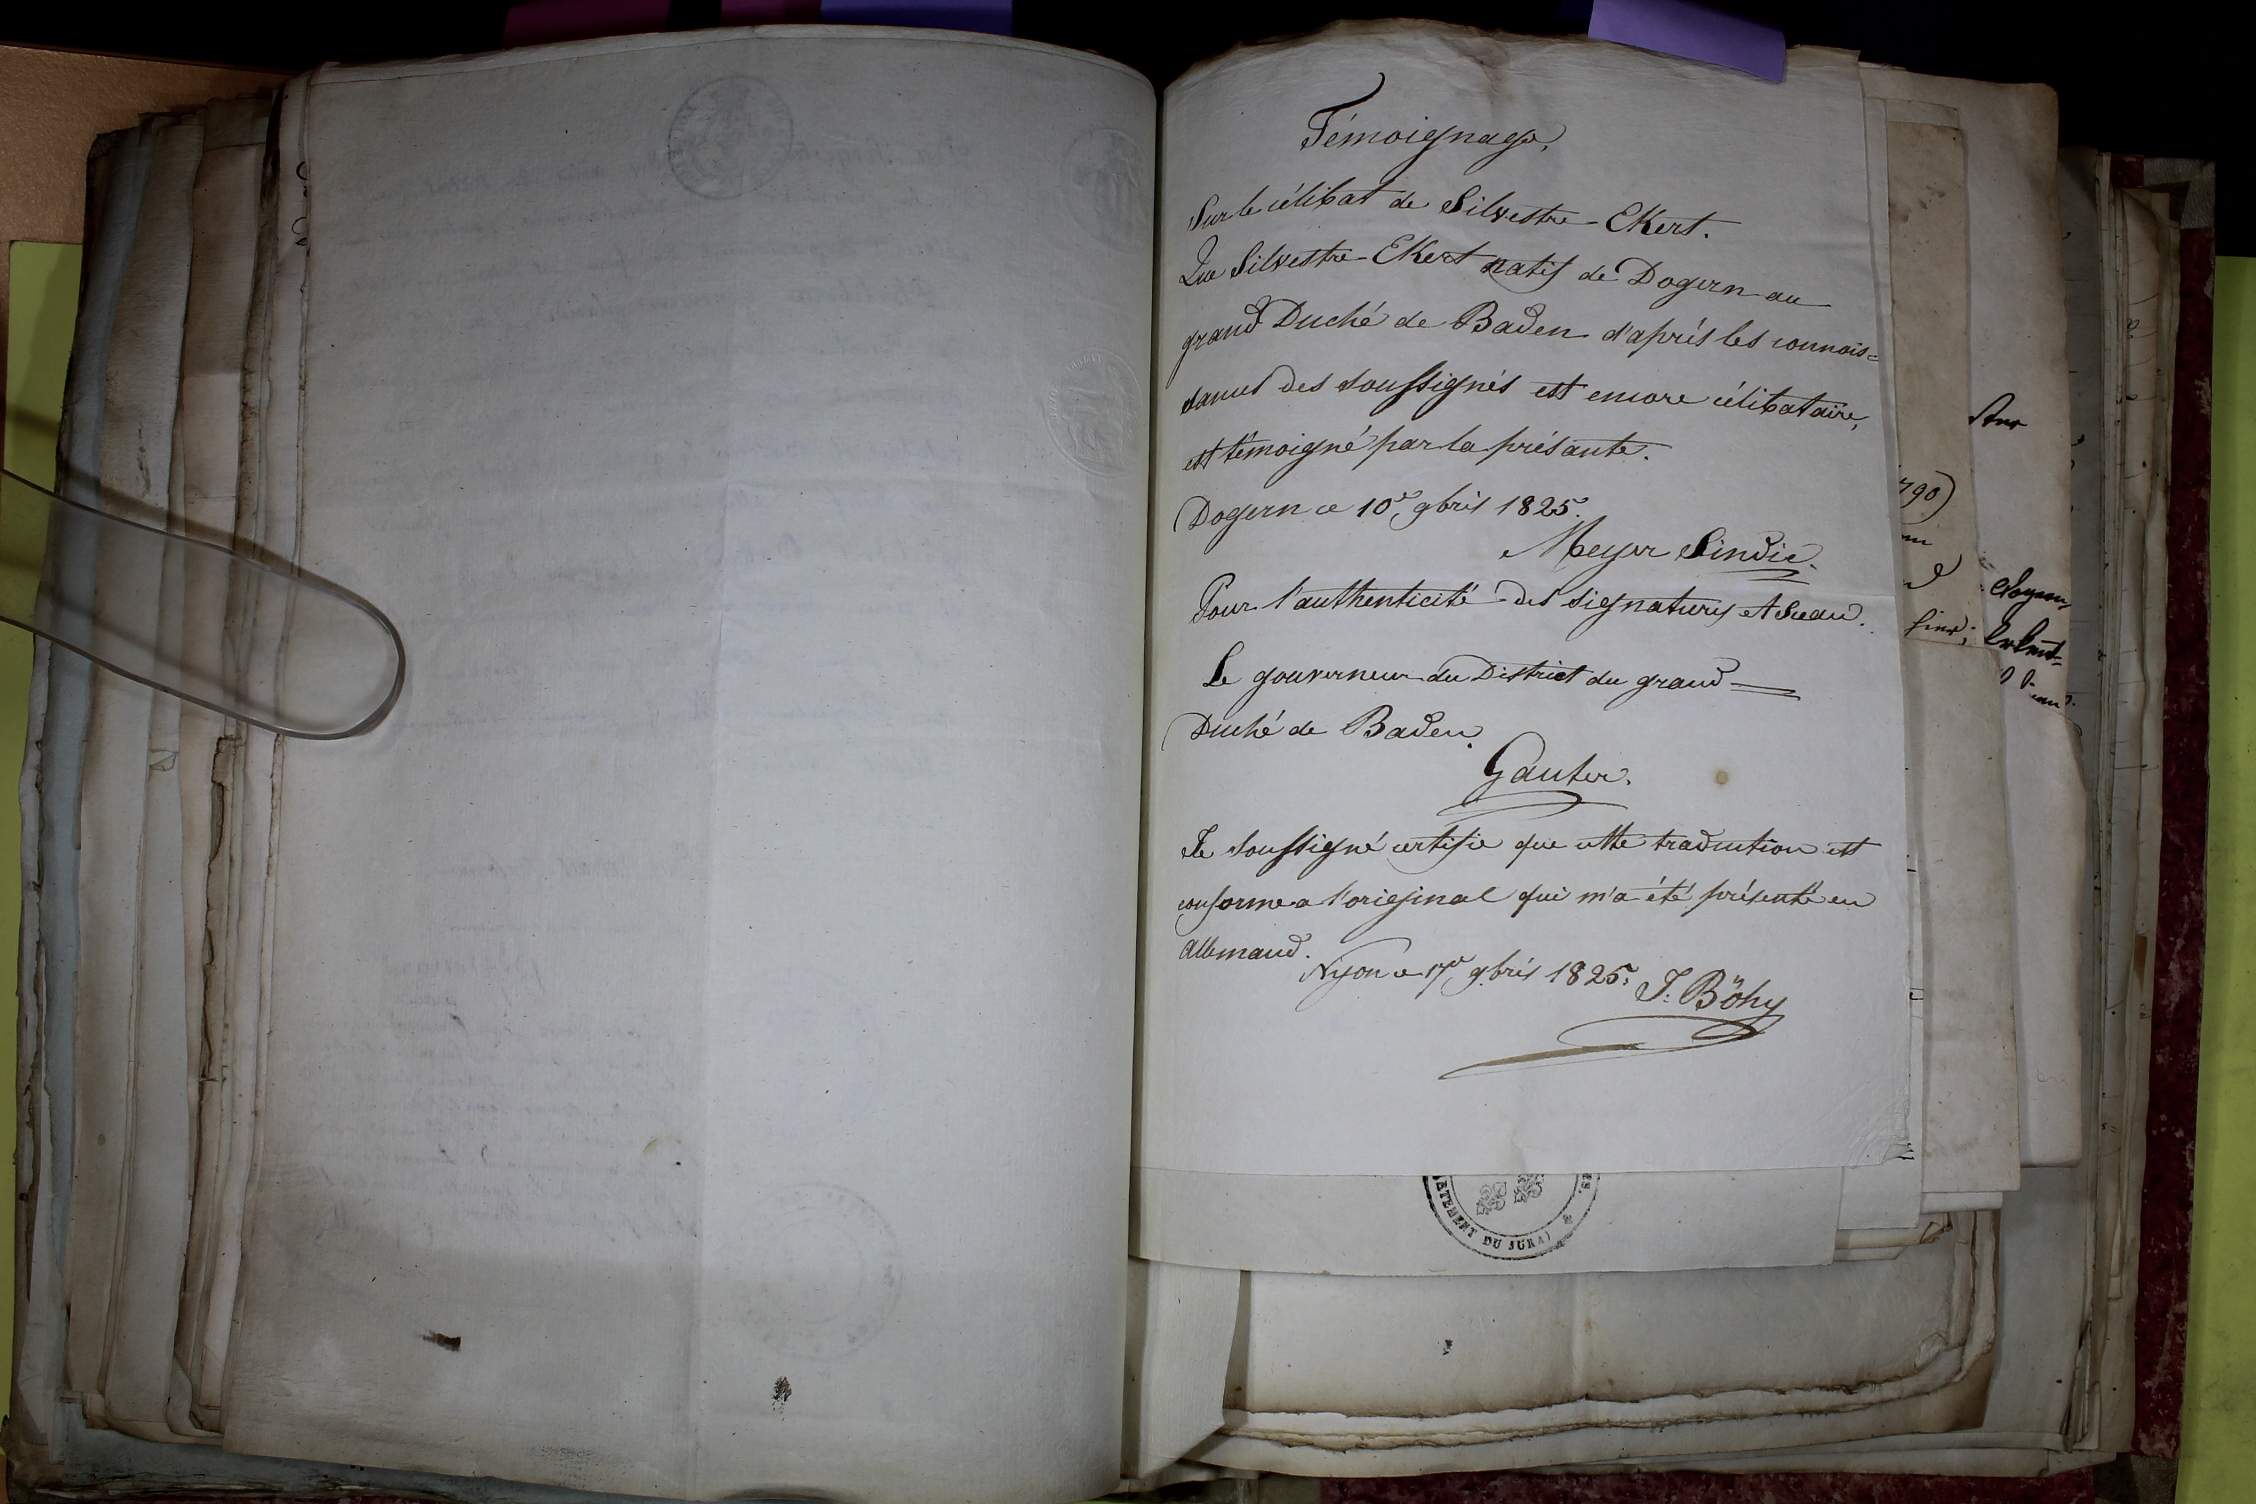 Témoignage,
Sur le célibat de Silvestre-Ekert.
Que Silvestre-Ekert natif de Dogern au
grand Duché de Baden d'après les connois=
sances des soussignés est encore célibataire,
est témoigné par la présante.
Dogern ce 10e, 9bris 1825.
Meyer Sindic.
Pour l'authenticité des signatures et Sceau.
Le gouverneur du District du grand
Duché de Baden.
Ganter.
Je soussigné certifie que cette traduction est
conforme a l'original qui m'a été présenté en
Allemand.
Nyon ce 17e 9bris 1825.
J: Böhy
TEMENT DU JURA)
790)